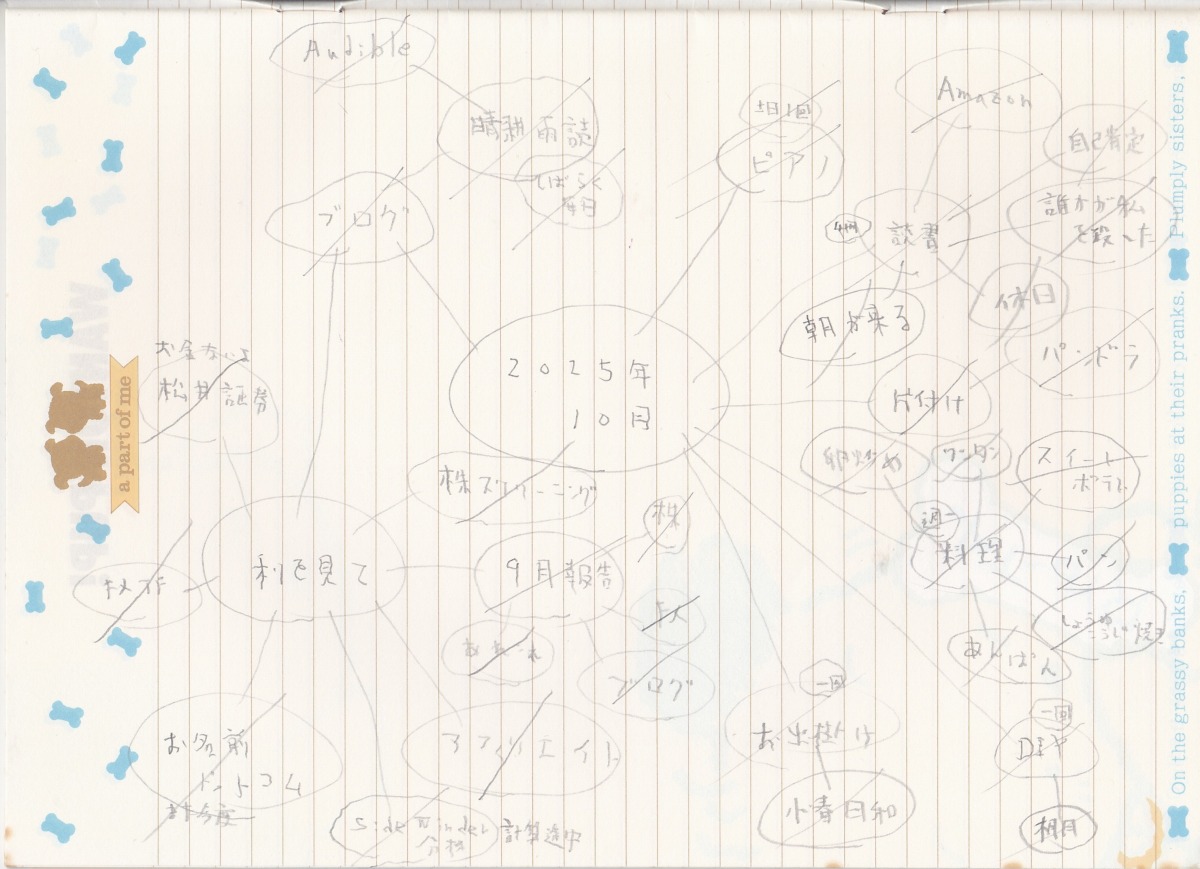 Audible
晴耕雨読
しばらく
毎日
ブログ
土日1回
ピアノ
Amazon
自己肯定
誰かが私
を殺した
4冊
読書
休日
朝が来る
パンドラ
片付け
2025年
10月
お金ないよ
松井証券
株スクリーニング
株
卵炒め
ワンタン
スイート
ポテト
週一
料理
パン
しょうゆ
こうじ焼き
あんぱん
利を見て
9月報告
ブログ
一回
お出掛け
小春日和
一回
DIY
棚
お名前
ドットコム
アフィリエイト
計算途中
a part of me
On the grassy banks, puppies at their pranks. Plumply sisters,